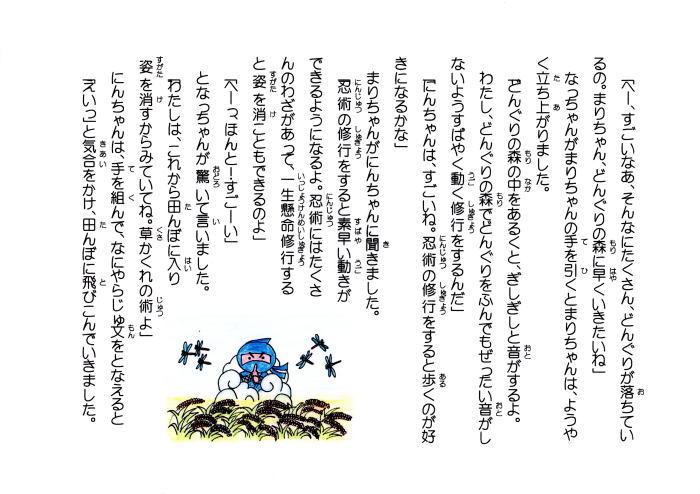 「へー、すごいなあ、そんなにたくさん、どんぐりが落ちてい
るの。まりちゃん、どんぐりの森に早くいきたいね」
なっちゃんがまりちゃんの手を引くとまりちゃんは、ようや
く立ち上がりました。
「どんぐりの森の中をあるくと、ぎしぎしと音がするよ。
わたし、どんぐりの森でどんぐりをふんでもぜったい音がし
ないようすばやく動く修行をするんだ」
「にんちゃんは、すごいね。忍術の修行をすると歩くのが好
きになるかな」
まりちゃんがにんちゃんに聞きました。
「忍術の修行をすると素早い動きが
できるようになるよ。忍術にはたくさ
んのわざがあって、一生懸命修行する
と姿を消こともできるのよ」
「へーっ、ほんと！すごーい」
となっちゃんが驚いて言いました。
「わたしは、これから田んぼに入り
姿を消すからみていてね。草かくれの術よ」
にんちゃんは、手を組んで、なにやらじゅ文をとなえると
「えいっ」と気合をかけ、田んぼに飛びこんでいきました。